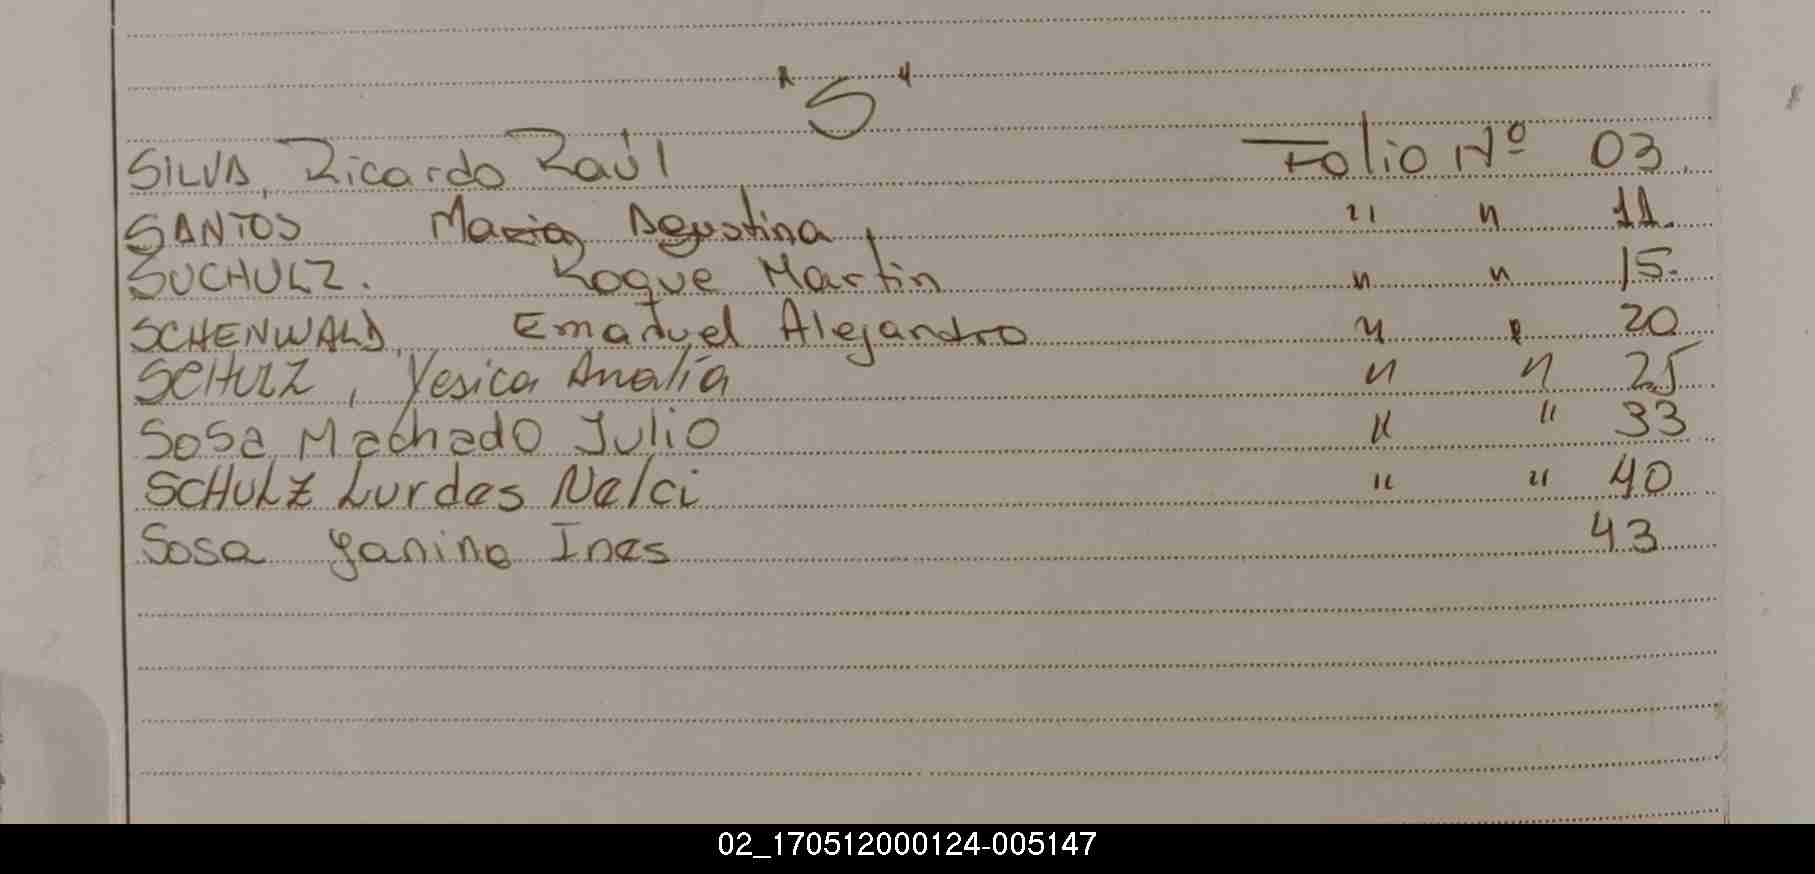 "S"
SILVA, Ricardo Raúl Folio Nº 03.
SANTOS Maria Agustina, " " 11.
SUCHULZ. Roque Martin " " 15.
SCHENWALD, Emanuel Alejandro " " 20
SCHULZ, Yesica Analía " " 25
Sosa Machado Julio " " 33
SCHULZ Lurdes Nelci " " 40
Sosa Yanina Ines 43
02_170512000124-005147